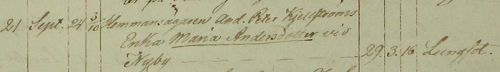 21 Sept. 24 3/10 Hemmansägaren And. Pers Kjellströms
Enka Maria Andersdotter vid
Nyby 29. 3. 16 Lungsot.